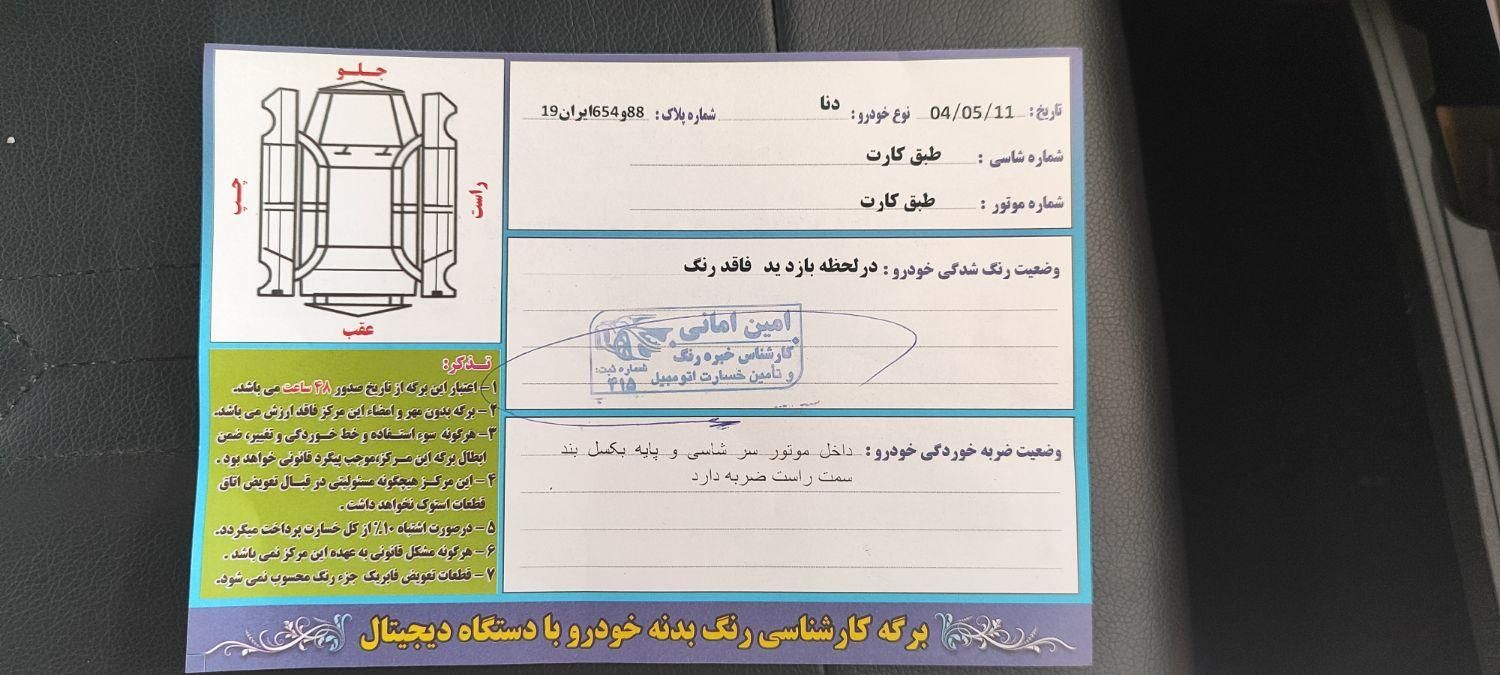 جـلـو
چـپ
راست
عقب
تاریخ: 04/05/11 نوع خودرو: دنا شماره پلاک: 88و654ایران19
شماره شاسی : طبق کارت
شماره موتور : طبق کارت
وضعیت رنگ شدگی خودرو : درلحظه بازد ید فاقد رنگ
امین امانی
کارشناس خبره رنگ
و تامین خسارت اتومبیل
شماره ثبت:
۴۱۵
وضعیت ضربه خوردگی خودرو : داخل موتور سر شاسی و پایه بکسل بند
سمت راست ضربه دارد
تـذکر:
۱- اعتبار این برگه از تاریخ صدور ۴۸ ساعت می باشد.
۲- برگه بدون مهر و امضاء این مرکز فاقد ارزش می باشد.
۳- هرگونه سوء استفاده و خط خوردگی و تغییر، ضمن
ابطال برگه این مرکز،موجب پیگرد قانونی خواهد بود .
۴- این مرکز هیچگونه مسئولیتی در قبال تعویض اتاق
قطعات استوک نخواهد داشت .
۵- درصورت اشتباه ۱۰% از کل خسارت پرداخت میگردد.
۶- هرگونه مشکل قانونی به عهده این مرکز نمی باشد .
۷- قطعات تعویض فابریک جزء رنگ محسوب نمی شود.
برگه کارشناسی رنگ بدنه خودرو با دستگاه دیجیتال